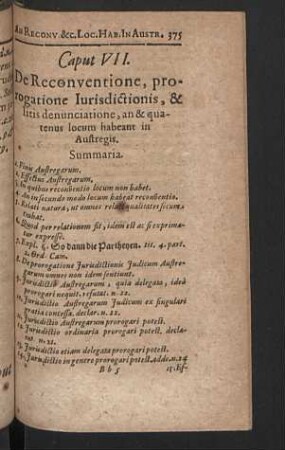 AN RECONV &c. LOC. HAB. IN AUSTR. 375
Caput VII.
De Reconventione, pro-
rogatione Iurisdictionis, &
litis denunciatione, an & qua-
tenus locum habeant in
Austregis.
Summaria.
1. Finis Austregarum.
2. Effectus Austregarum.
3. In quibus reconventio locum non habet.
4. An in secundo modo locum habeat reconventio.
5. Relati natura, ut omnes relati qualitates secum
trahat.
6. Quod per relationem fit, idem est ac si exprima-
tur expresse.
7. Expl. §. So dann die Partheyen. tit. 4. part.
2. Ord. Cam.
8. De prorogatione Jurisdictionis Judicum Austre-
garum omnes non idem sentiunt.
9. Jurisdictio Austregarum, quia delegata, ideò
prorogari nequit. refutat. n. 12.
10. Jurisdictio Austregarum Judicum ex singulari
gratia concessa. declar. n. 22.
11. Jurisdictio Austregarum prorogari potest.
12. Jurisdictio ordinaria prorogari potest. decla-
n. 21.
13. Jurisdictio etiam delegata prorogari potest.
14. Jurisdictio in genere prorogari potest. adde n. 24
B b 5
15. Ef-